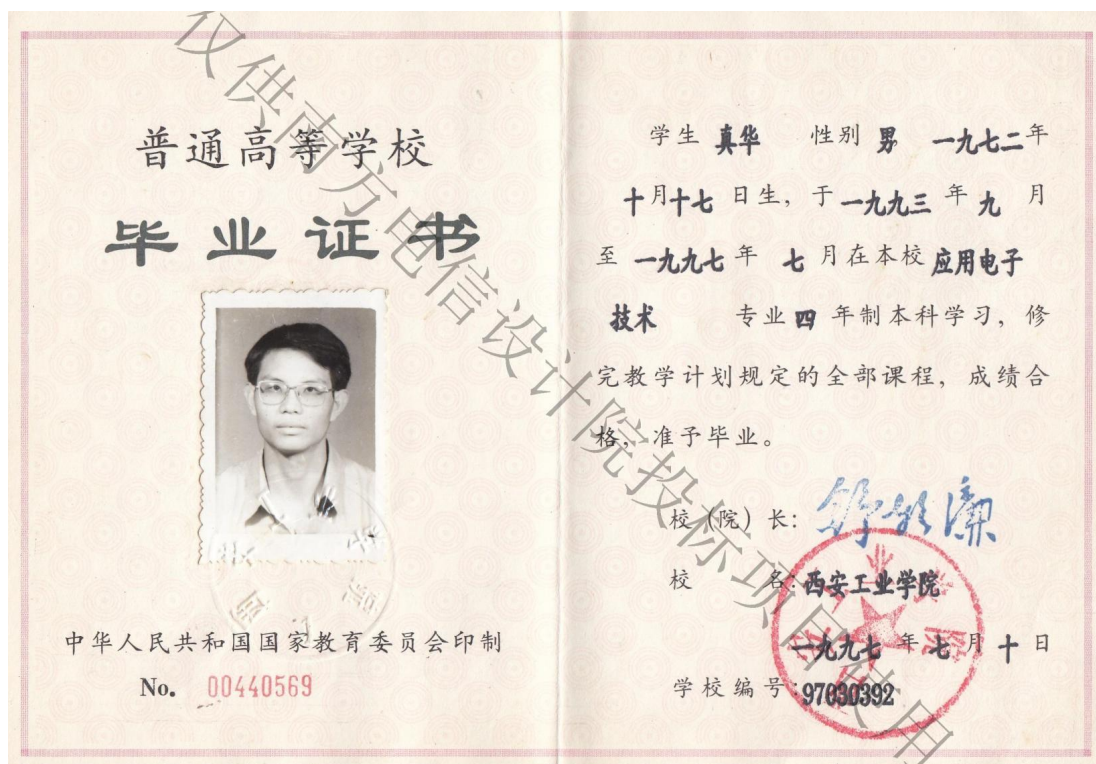 普通高等学校
毕业证书
中华人民共和国国家教育委员会印制
No. 00440569
学生 真华 性别 男 一九七二年
十月十七日生，于一九九三年九月
至一九九七年七月在本校应用电子
技术 专业四年制本科学习，修
完教学计划规定的全部课程，成绩合
格，准予毕业。
校（院）长：
校名：西安工业学院
一九九七年七月十日
学校编号：97030392
仅供南方电信设计院投标项目使用